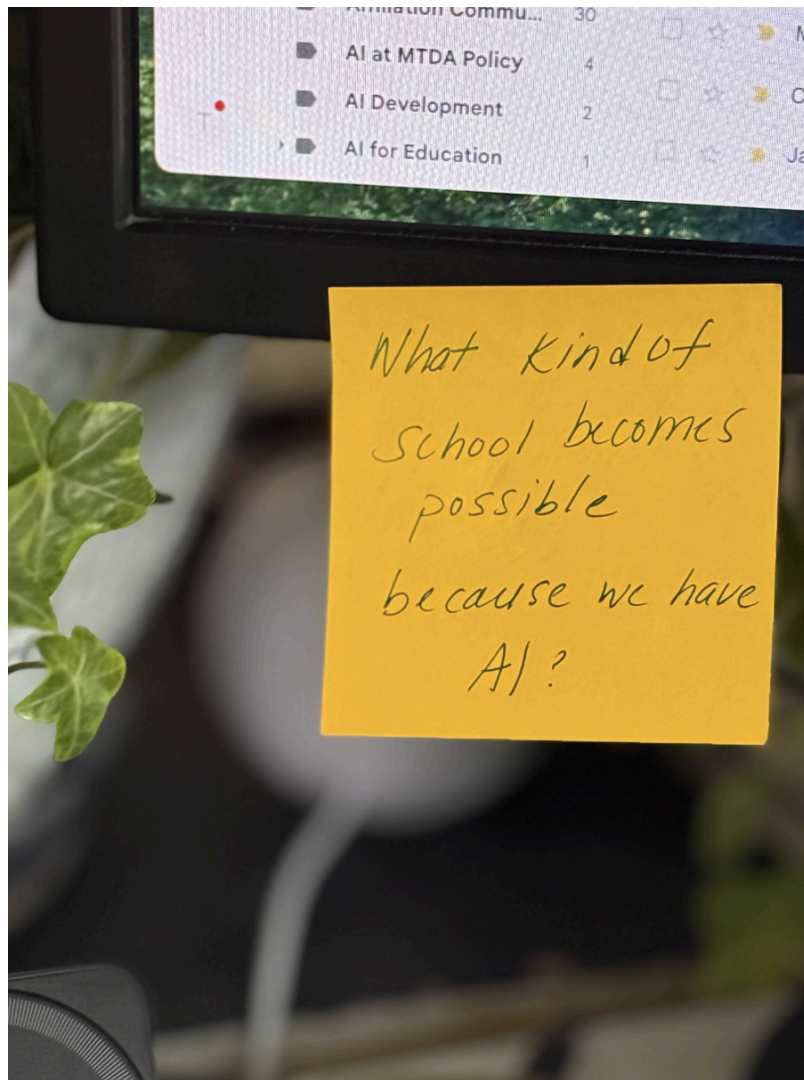 Affiliation Commu... 30
AI at MTDA Policy 4
AI Development 2
AI for Education 1
What kind of
school becomes
possible
because we have
AI?